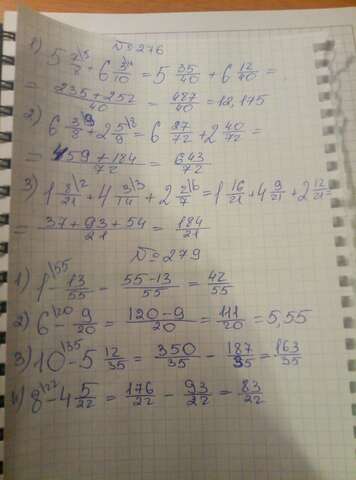 №276
1) 5 7/8 \5 + 6 3/10 \4 = 5 35/40 + 6 12/40 =
= 235 + 252 / 40 = 487/40 = 12,175
2) 6 3/8 \9 + 2 5/9 \8 = 6 27/72 + 2 40/72 =
= 459 + 184 / 72 = 643/72
3) 1 8/21 \2 + 4 3/14 \3 + 2 2/7 \6 = 1 16/21 + 4 9/21 + 2 12/21 =
= 37 + 93 + 54 / 21 = 184/21
№279
1) 1 \55 - 13/55 = 55-13 / 55 = 42/55
2) 6 \20 - 9/20 = 120-9 / 20 = 111/20 = 5,55
3) 10 \35 - 5 12/35 = 350/35 - 187/35 = 163/35
4) 8 \22 - 4 5/22 = 176/22 - 93/22 = 83/22